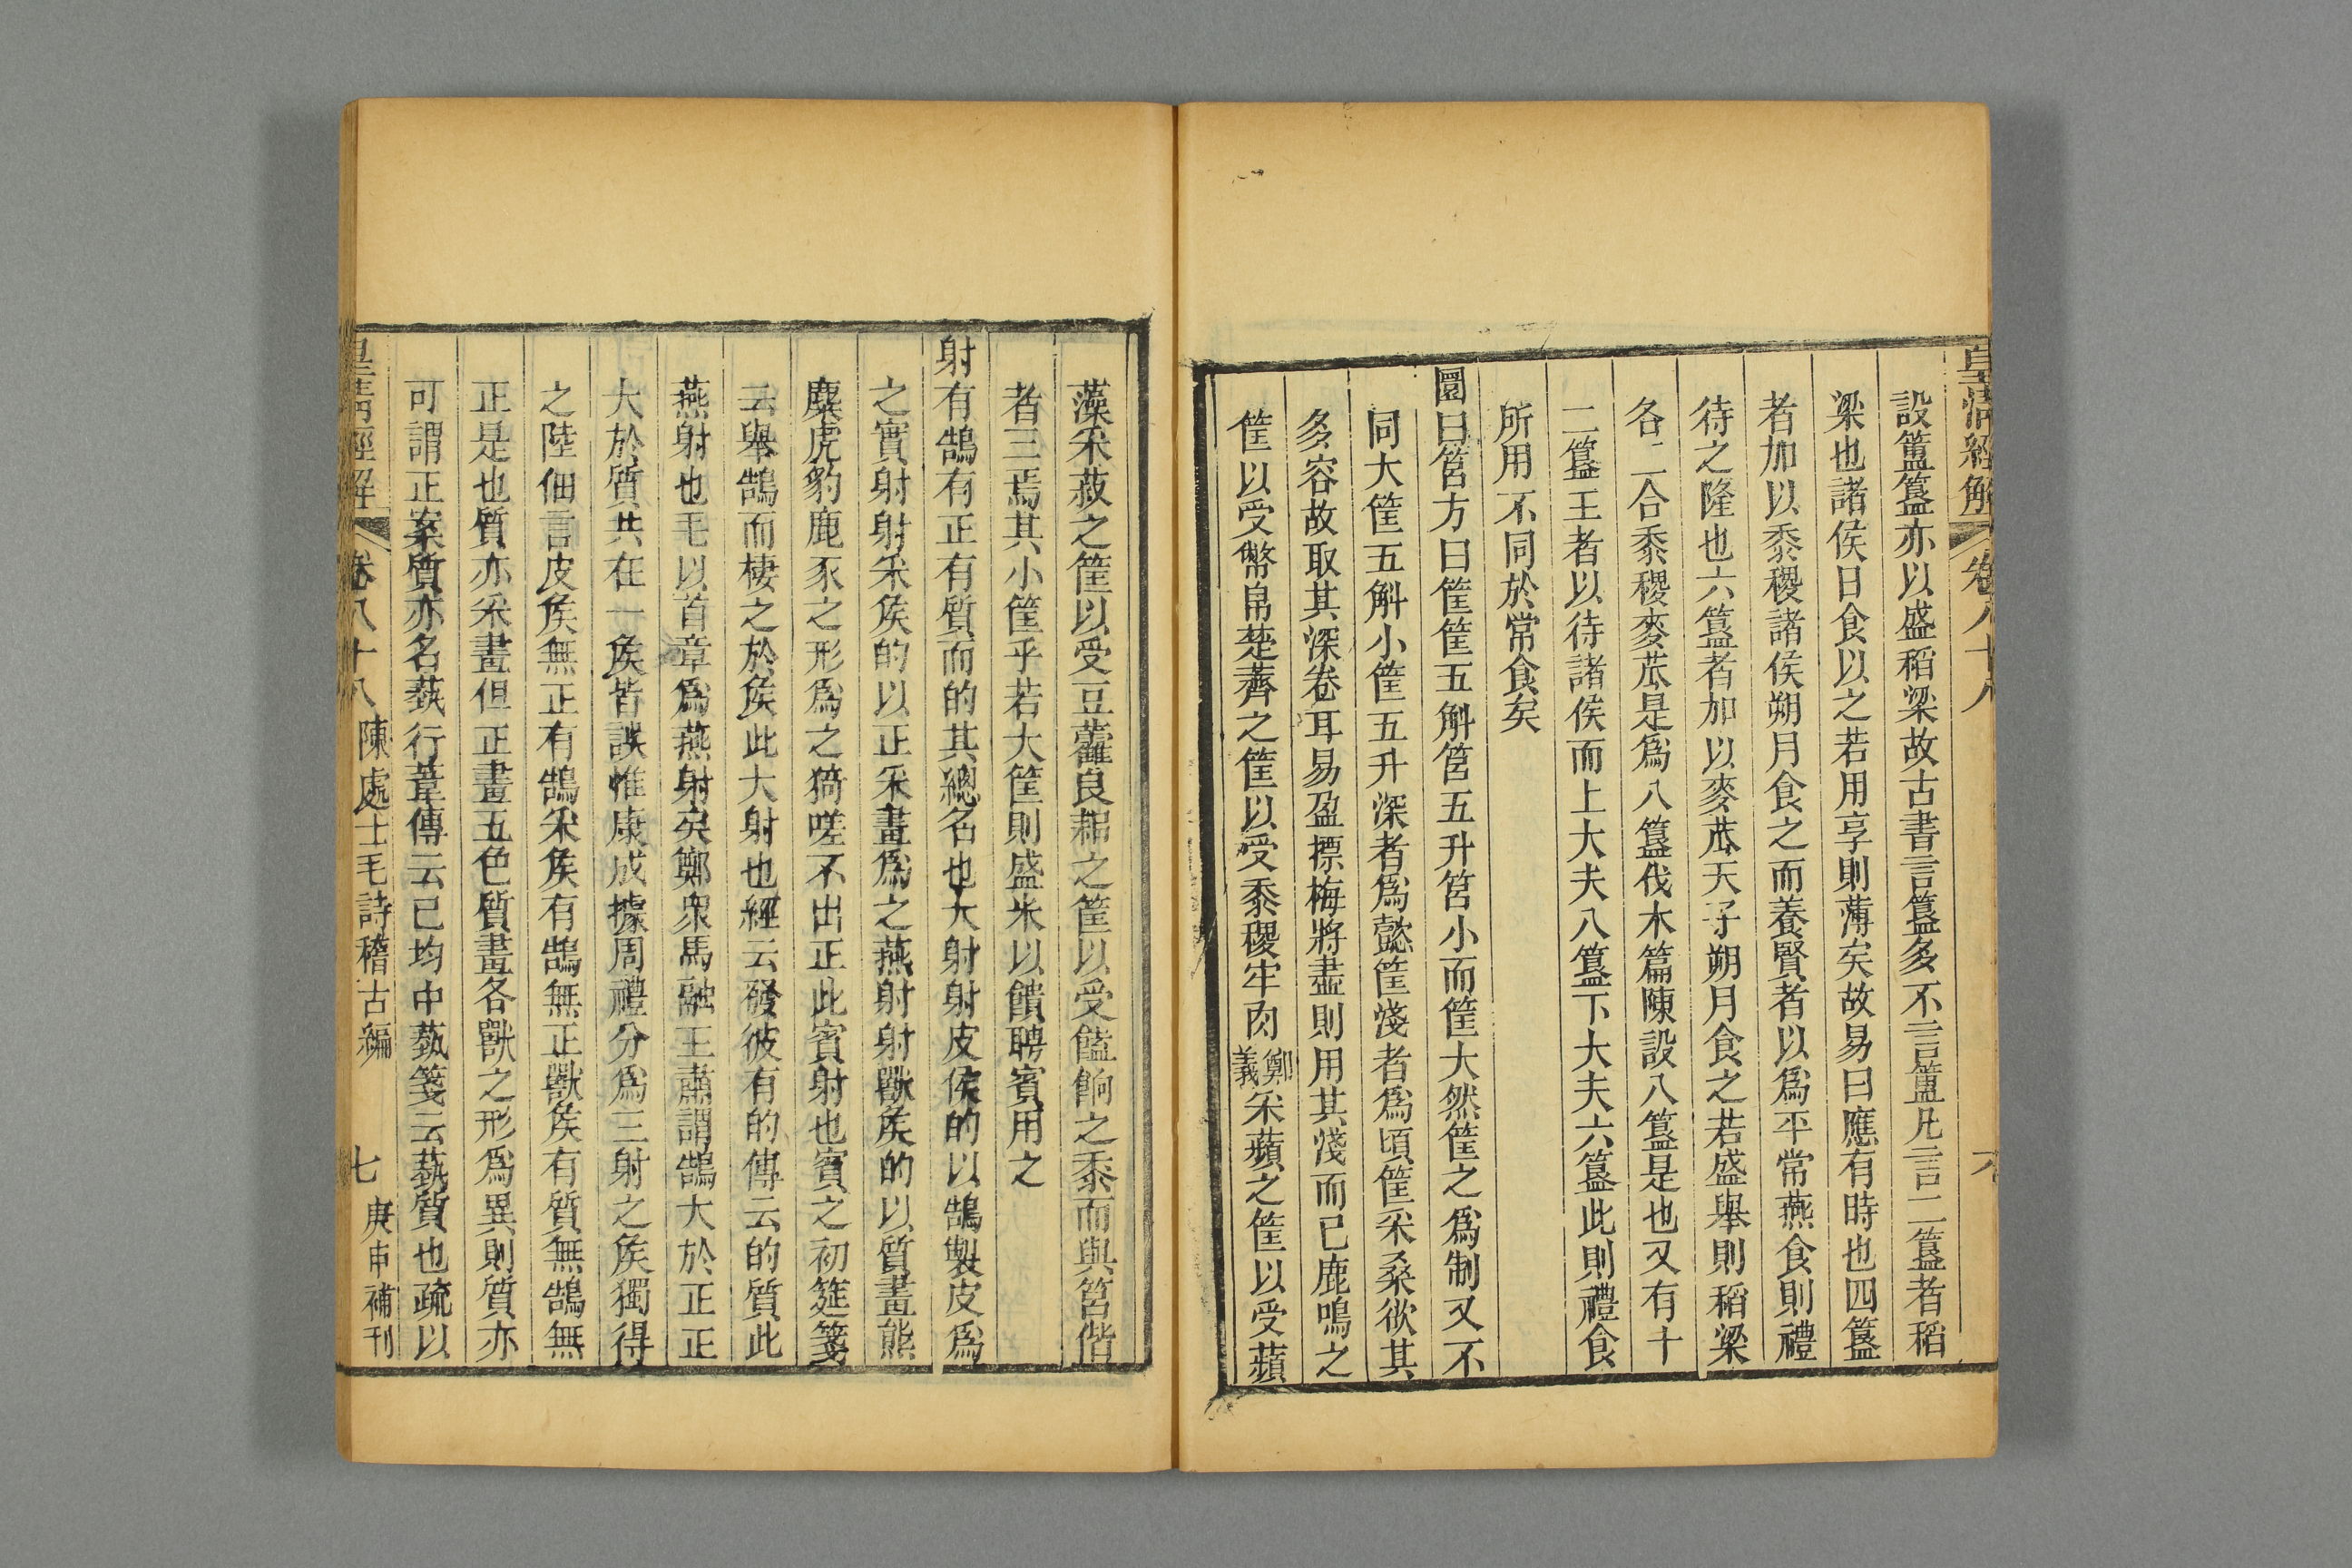 皇清經解 卷八十八 六
設簠簋亦以盛稻粱故古書言簋多不言簠凡言二簋者稻
粱也諸侯日食以之若用享則薄矣故易曰應有時也四簋
者加以黍稷諸侯朔月食之而養賢者以為平常燕食則禮
待之隆也六簋者加以麥苽天子朔月食之若盛舉則稻粱
各二合黍稷麥苽是為八簋伐木篇陳設八簋是也又有十
二簋王者以待諸侯而上大夫八簋下大夫六簋此則禮食
所用不同於常食矣
圜曰筥方曰筐筐五斛筥五升筥小而筐大然筐之為制又不
同大筐五斛小筐五升深者為懿筐淺者為頃筐采桑欲其
多容故取其深卷耳易盈摽梅將盡則用其淺而已鹿鳴之
筐以受幣帛楚薺之筐以受黍稷牢肉鄭義采蘋之筐以受蘋
藻采菽之筐以受豆藿良耜之筐以受饁餉之黍而與筥偕
者三焉其小筐乎若大筐則盛米以饋聘賓用之
射有鵠有正有質而的其總名也大射射皮侯的以鵠製皮為
之賓射射采侯的以正采畫為之燕射射獸侯的以質畫熊
麋虎豹鹿豕之形為之猗嗟不出正此賓射也賓之初筵箋
云舉鵠而棲之於侯此大射也經云發彼有的傳云的質此
燕射也毛以首章為燕射矣鄭眾馬融王肅謂鵠大於正正
大於質共在一侯皆誤惟康成據周禮分為三射之侯獨得
之陸佃言皮侯無正有鵠采侯有鵠無正獸侯有質無鵠無
正是也質亦采畫但正畫五色質畫各獸之形為異則質亦
可謂正案質亦名蓺行葦傳云已均中蓺箋云蓺質也疏以
皇清經解 卷八十八 陳處士毛詩稽古編 七 庚申補刊